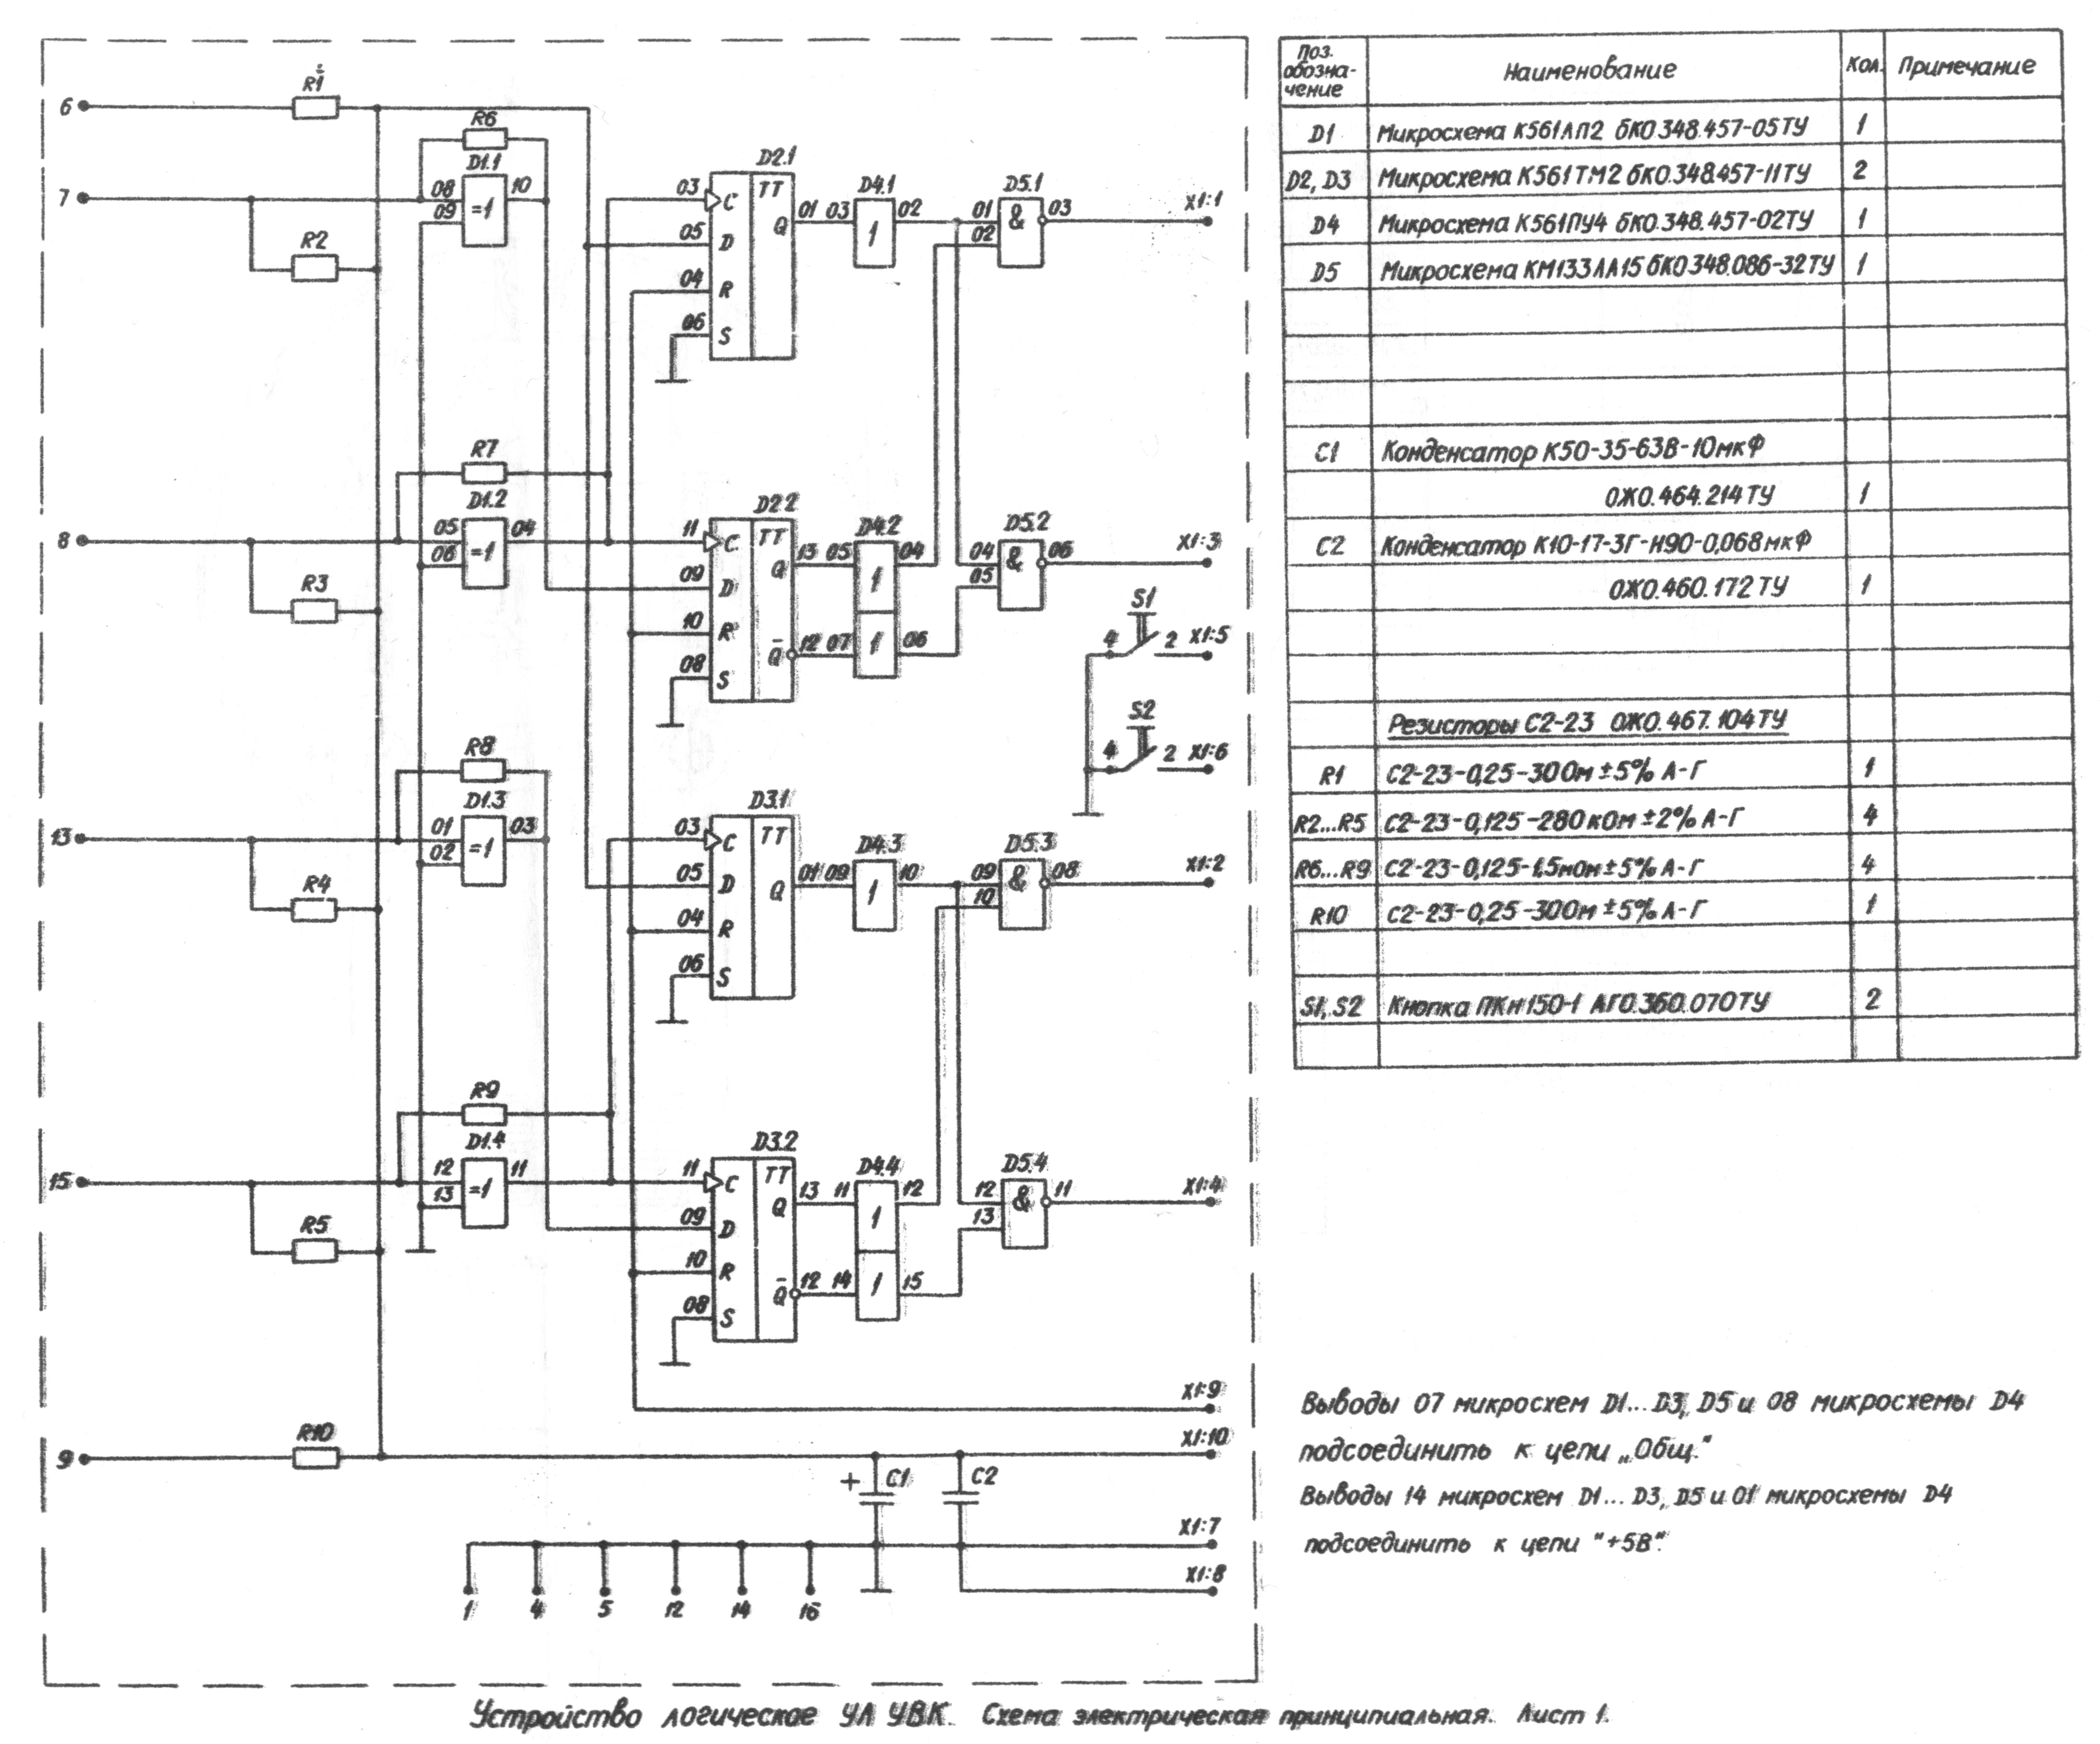 6
R1
R6
D1.1
08
09
=1
10
7
R2
D2.1
03
C
TT
05
D
04
R
06
S
Q
01
03
D4.1
1
02
D5.1
01
02
&
03
X1:1
R7
D1.2
8
05
06
=1
04
R3
D2.2
11
C
TT
09
D
10
R
08
S
Q
13
05
D4.2
1
04
Q̅
12
07
1
06
D5.2
04
05
&
06
X1:3
S1
4
2
X1:5
S2
4
2
X1:6
R8
D1.3
13
01
02
=1
03
R4
D3.1
03
C
TT
05
D
04
R
06
S
Q
01
09
D4.3
1
10
D5.3
09
10
&
08
X1:2
R9
D1.4
15
12
13
=1
11
R5
D3.2
11
C
TT
09
D
10
R
08
S
Q
13
11
D4.4
1
12
Q̅
12
14
1
15
D5.4
12
13
&
11
X1:4
X1:9
9
R10
X1:10
+
C1
C2
X1:7
X1:8
1
4
5
12
14
16
Поз. обозна-чение Наименование Кол. Примечание
D1 Микросхема К561ЛП2 бК0.348.457-05ТУ 1
D2, D3 Микросхема К561ТМ2 бК0.348.457-11ТУ 2
D4 Микросхема К561ПУ4 бК0.348.457-02ТУ 1
D5 Микросхема КМ133ЛА15 бК0.348.086-32ТУ 1
C1 Конденсатор К50-35-63В-10мкФ
ОЖ0.464.214ТУ 1
C2 Конденсатор К10-17-3Г-Н90-0,068мкФ
ОЖ0.460.172ТУ 1
Резисторы С2-23 ОЖ0.467.104ТУ
R1 С2-23-0,25-30Ом±5% А-Г 1
R2...R5 С2-23-0,125-280кОм±2% А-Г 4
R6...R9 С2-23-0,125-1,5мОм±5% А-Г 4
R10 С2-23-0,25-30Ом±5% А-Г 1
S1, S2 Кнопка ПКН150-1 АГ0.360.070ТУ 2
Выводы 07 микросхем D1...D3, D5 и 08 микросхемы D4
подсоединить к цепи „Общ."
Выводы 14 микросхем D1...D3, D5 и 01 микросхемы D4
подсоединить к цепи "+5В".
Устройство логическое УЛ УВК. Схема электрическая принципиальная. Лист 1.